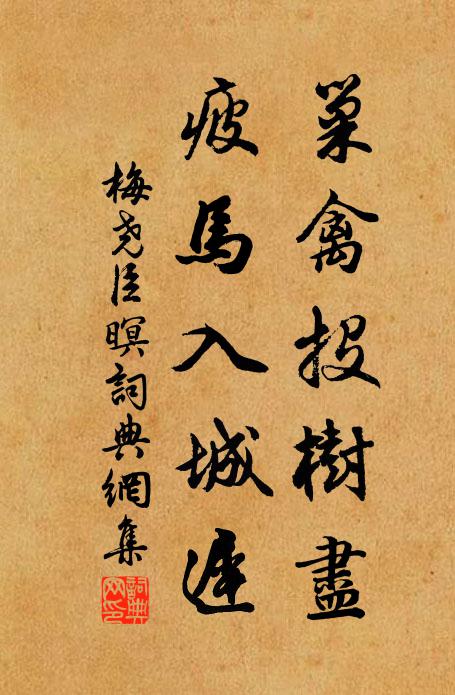 巢禽投樹盡
疲馬入城遲
梅堯臣暝詞典網集
詞典網印